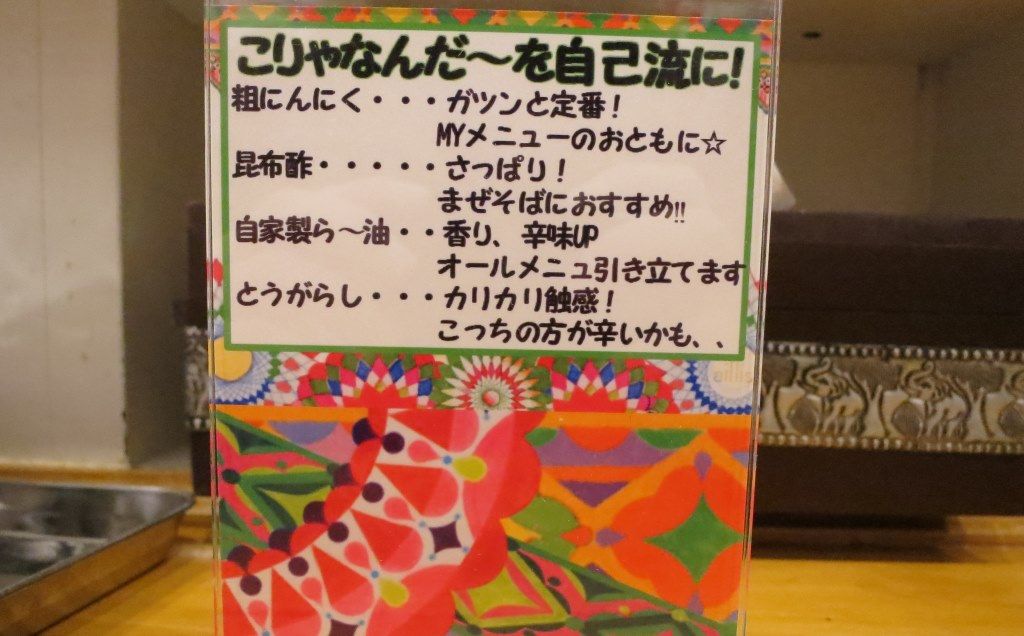 こりゃなんだ～を自己流に!
粗にんにく・・・ガツンと定番!
MYメニューのおともに☆
昆布酢・・・・・さっぱり!
まぜそばにおすすめ!!
自家製ら～油・・香り、辛味UP
オールメニュ引き立てます
とうがらし・・・カリカリ触感!
こっちの方が辛いかも、、